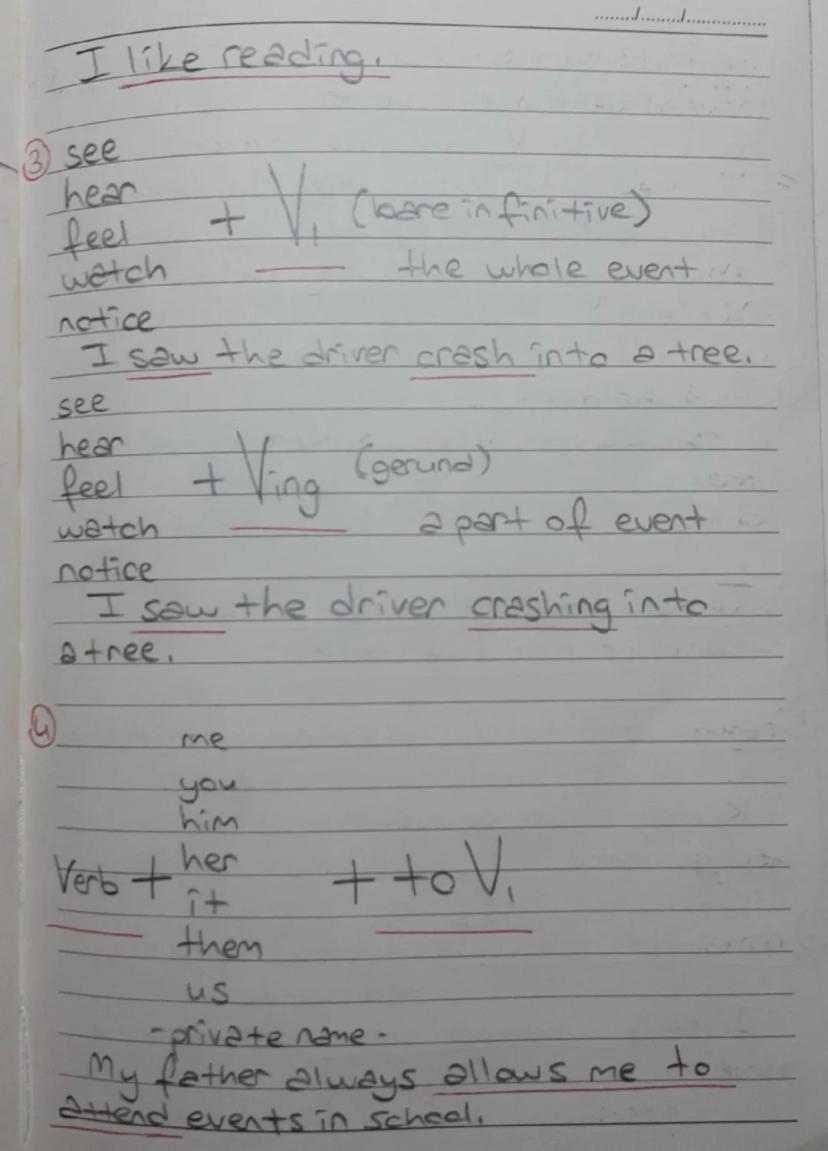 ......../......../...............
I like reading.
③ see
hear
feel + V₁ (bare infinitive)
watch the whole event
notice
I saw the driver crash into a tree.
see
hear
feel + Ving (gerund)
watch a part of event
notice
I saw the driver crashing into
a tree.
④
me
you
him
Verb + her + to V₁
it
them
us
-private name-
My father always allows me to
attend events in school.